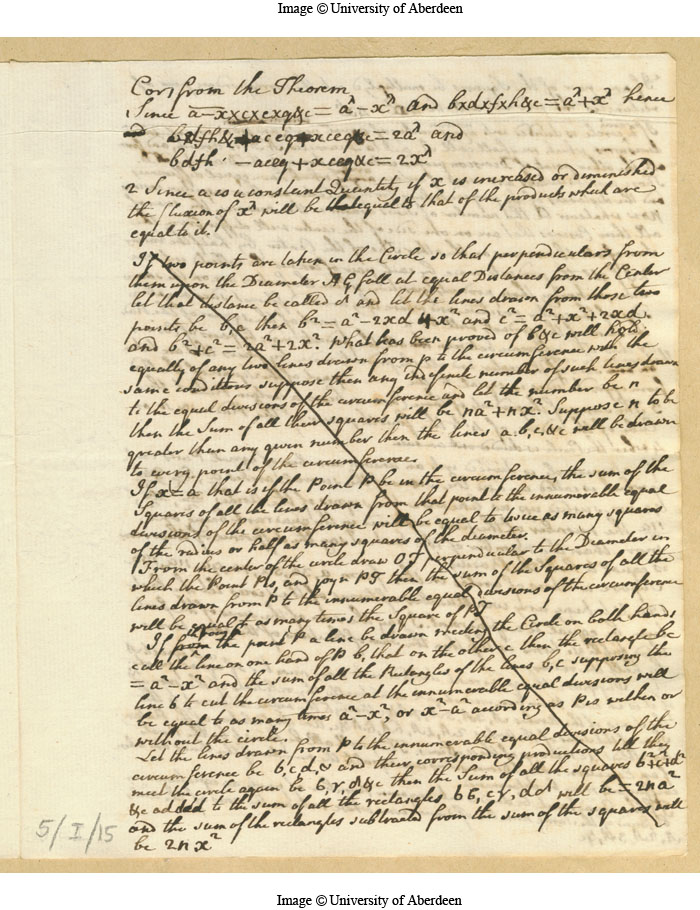 Image © University of Aberdeen
Cor 1 from the Theorem
Since a-x×c×e×g&c = aⁿ-xⁿ and b×d×f×h&c = aⁿ+xⁿ hence
bdfh&c + aceg + xceg&c = 2aⁿ and
bdfh - aceg + xceg&c = 2xⁿ
2 Since a is a constant Quantity if x is increased or diminished
the fluxion of xⁿ will be equal to that of the products which are
equal to it.
If two points are taken in the Circle so that perpendiculars from
them upon the Diameter AG fall at equal Distances from the Center
let that distance be called d and let the lines drawn from those two
points be b, c then b² = a²-2xd+x² and c² = a²+x²+2xd.
and b²+c² = 2a²+2x². What has been proved of b &c will hold
equally of any two lines drawn from p to the circumference with the
same conditions suppose then any indefinite number of such lines drawn
to the equal divisions of the circumference and let the number be n
then the Sum of all their squares will be na²+nx². Suppose n to be
greater than any given number then the lines a.b,c,&c will be drawn
to every point of the circumference.
If x=a that is if the Point P be in the circumference, the sum of the
Squares of all the lines drawn from that point to the innumerable equal
divisions of the circumference will be equal to twice as many squares
of the radius or half as many squares of the diameter.
From the center of the circle draw OT perpendicular to the Diameter in
which the Point P is, and joyn PT then the sum of the Squares of all the
lines drawn from P to the innumerable equal divisions of the circumference
will be equal to as many times the Square of PT
If through the point P a line be drawn meeting the Circle on both hands
call the line on one hand of P b, that on the other c then the rectangle bc
= a²-x² and the sum of all the Rectangles of the lines b, c supposing the
line b to cut the circumference at the innumerable equal divisions will
be equal to as many times a²-x², or x²-a² according as P is within or
without the circle.
Let the lines drawn from P to the innumerable equal divisions of the
circumference be b, c, d, & and their corresponding productions till they
meet the circle again be &c then the Sum of all the squares b²+c²+d²
&c added to the sum of all the rectangles will be = 2na²
and the sum of the rectangles subtracted from the sum of the squares will
be 2nx²
5/I/15
Image © University of Aberdeen